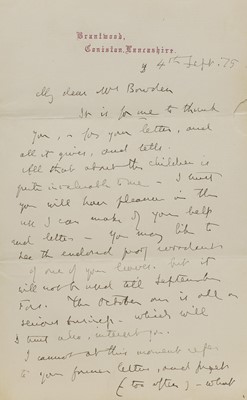 Brantwood,
Coniston, Lancashire.
4th Sept. 75
My dear Mrs Bowden
It is for me to thank
you, for your letter, and
all it gives, and tells.
All that about the children is
quite invaluable to me – I trust
you will have pleasure in the
use I can make of your help
and letter – You may like to
see the enclosed proof woodcuts
of one of your leaves. but it
will not be used till September
The October one is all on
serious business – which will
I trust also, interest you.
I cannot at this moment refer
to your former letter, and forget
(too often) – what